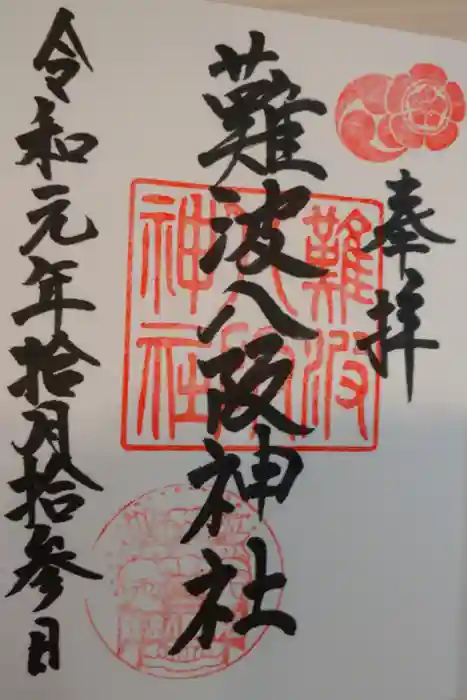 奉拝
難波八阪神社
令和元年拾月拾参日
難波
八阪
神社